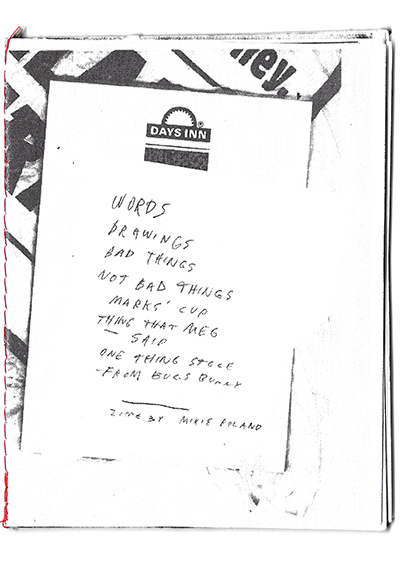 ney.
DAYS INN
WORDS
DRAWINGS
BAD THINGS
NOT BAD THINGS
MARKS' CUP
THING THAT MEG
SAID
ONE THING STOLE
FROM BUGS BUNNY
ZINE BY MIKIE POLAND